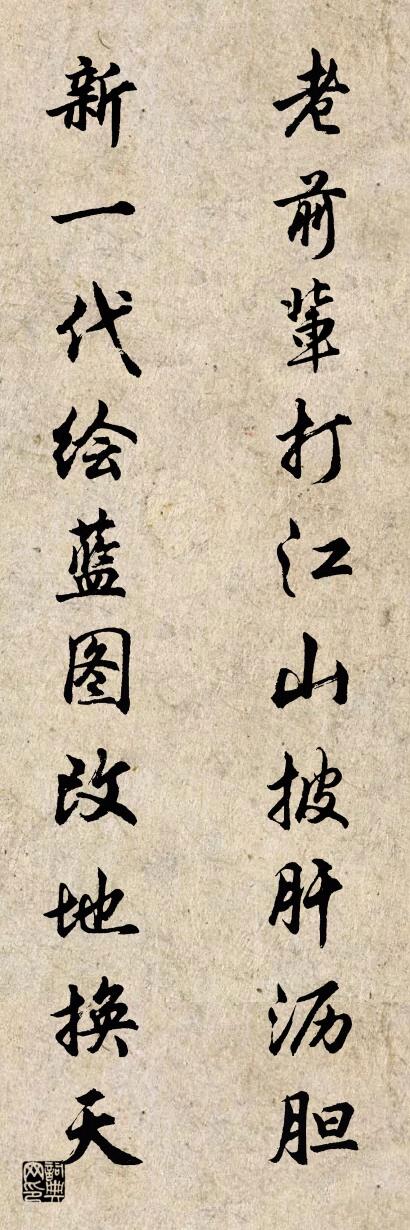 老前辈打江山披肝沥胆
新一代绘蓝图改地换天
詞典网印